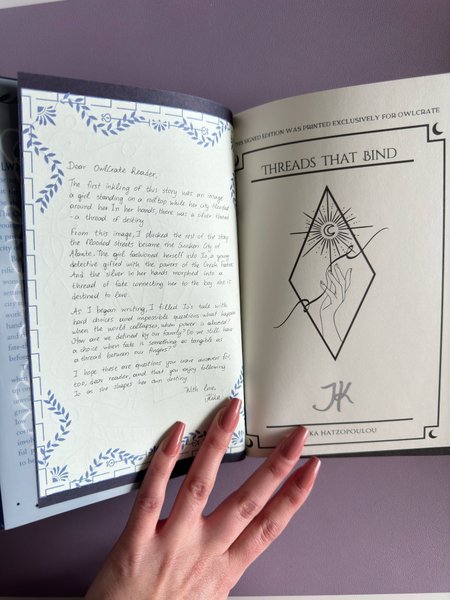 Dear OwlCrate Reader,
The first inkling of this story was an image:
a girl standing on a rooftop while her city flooded
around her. In her hands, there was a silver thread
- a thread of destiny.
From this image, I plucked the rest of the story:
the flooded streets became the Sunken City of
Alante. The girl fashioned herself into Io, a young
detective gifted with the powers of the Greek Fates.
And the silver in her hands morphed into a
thread of fate connecting her to the boy she is
destined to love.
As I began writing, I filled Io's tale with
hard choices and impossible questions: what happens
when the world collapses, when power is abused?
How are we defined by our family? Do we still have
a choice when fate is something as tangible as
a thread between our fingers?
I hope these are questions you crave answers for,
too, dear reader, and that you enjoy following
Io as she shapes her own destiny.
With love,
Kika
THIS SIGNED EDITION WAS PRINTED EXCLUSIVELY FOR OWLCRATE
THREADS THAT BIND
KA HATZOPOULOU